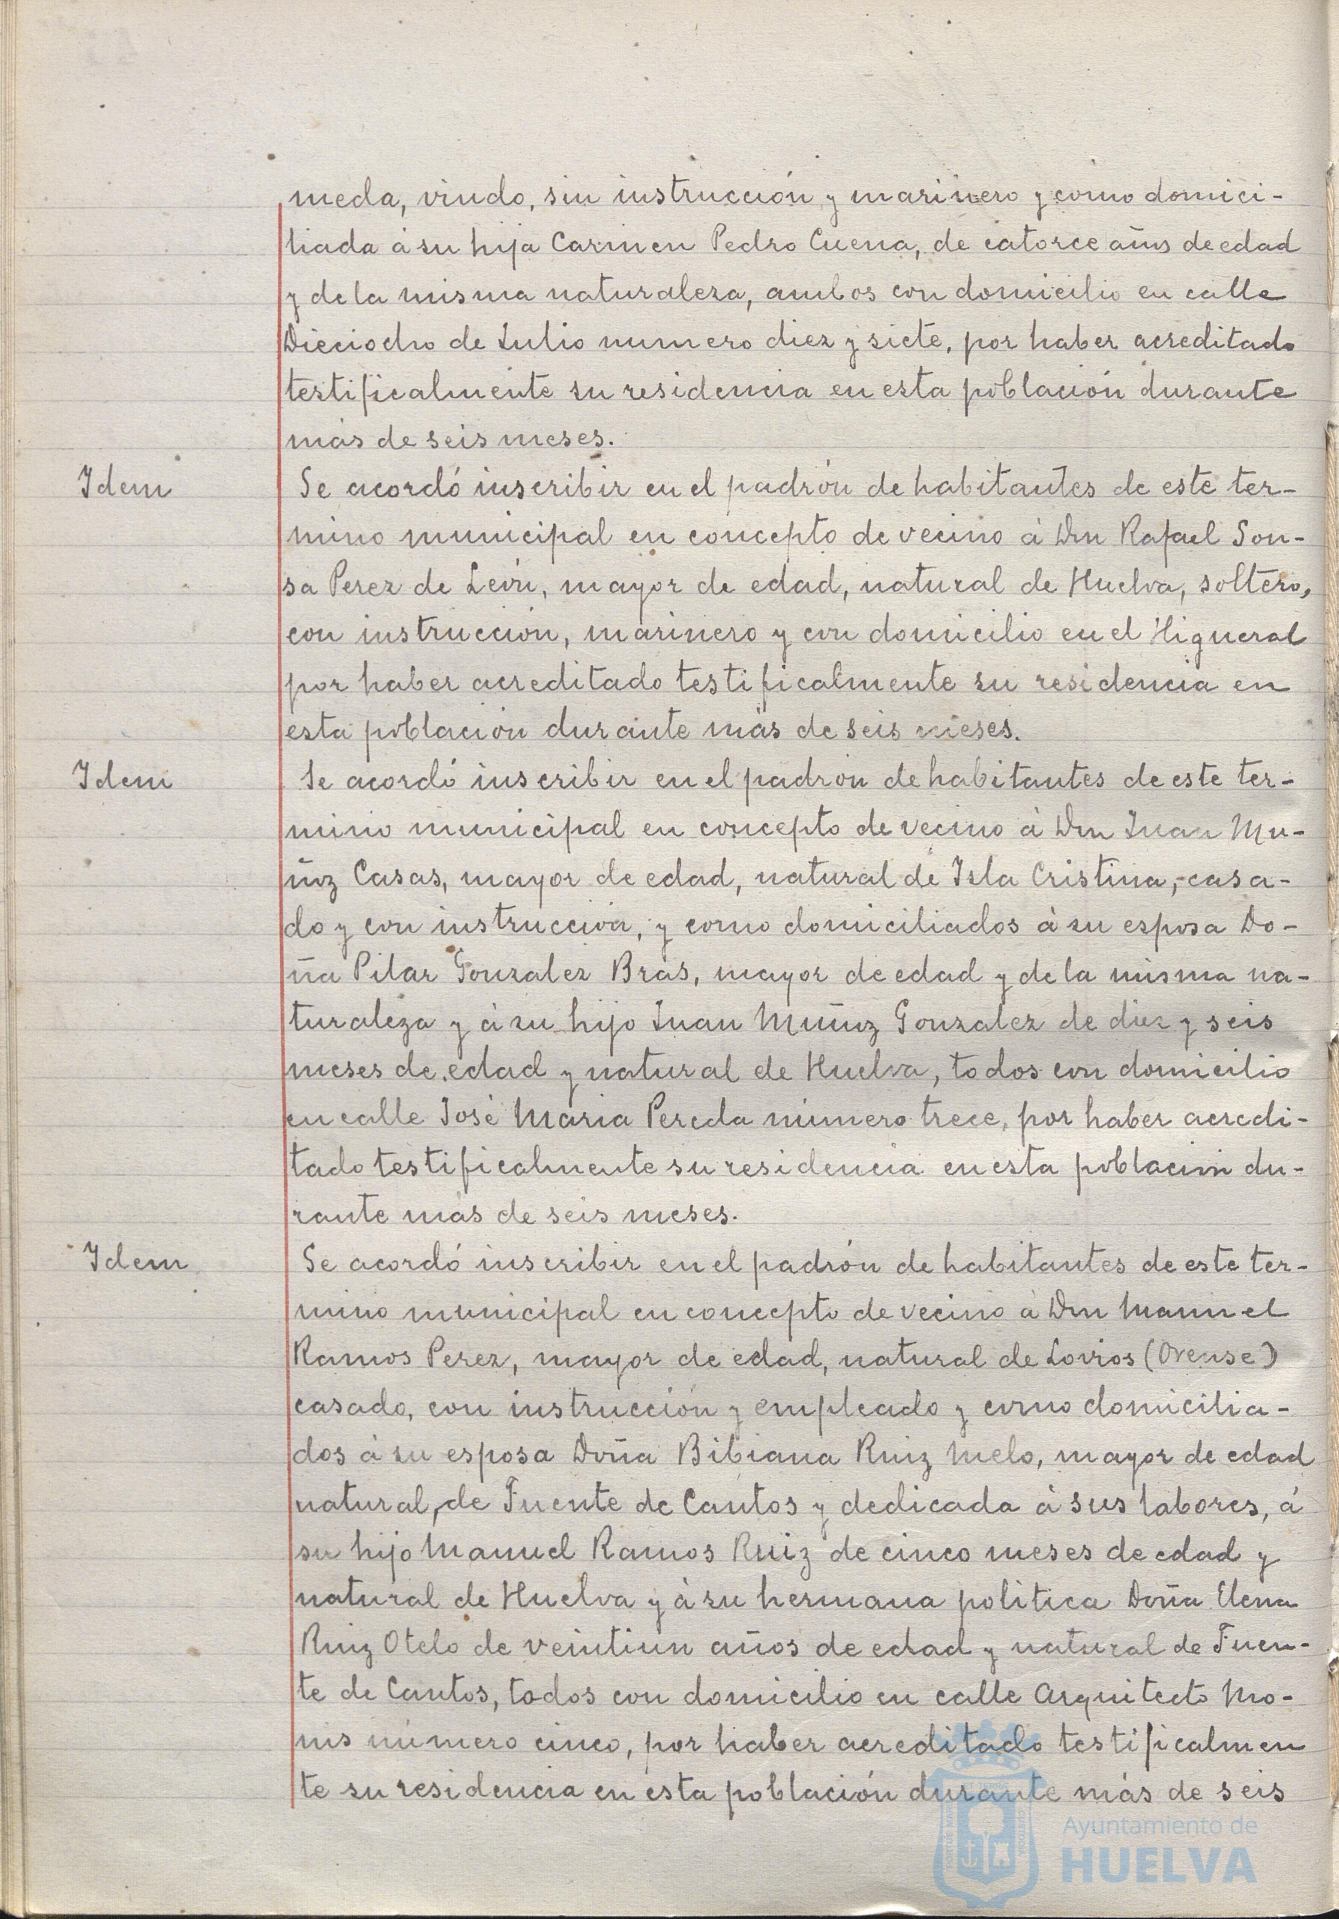 meda, viudo, sin instrucción y marinero y como domici-
liada á su hija Carmen Pedro Cuena, de catorce años de edad
y de la misma naturaleza, ambos con domicilio en calle
Dieciocho de Julio numero diez y siete, por haber acreditado
testificalmente su residencia en esta población durante
más de seis meses.
Idem
Se acordó inscribir en el padrón de habitantes de este ter-
mino municipal en concepto de vecino á Don Rafael Sou-
sa Perez de León, mayor de edad, natural de Huelva, soltero,
con instrucción, marinero y con domicilio en el Higueral
por haber acreditado testificalmente su residencia en
esta población durante más de seis meses.
Idem
Se acordó inscribir en el padrón de habitantes de este ter-
mino municipal en concepto de vecino á Don Juan Mu-
ñoz Casas, mayor de edad, natural de Isla Cristina, casa-
do y con instrucción, y como domiciliados á su esposa Do-
ña Pilar Gonzalez Bras, mayor de edad y de la misma na-
turaleza y á su hijo Juan Muñoz Gonzalez de diez y seis
meses de edad y natural de Huelva, todos con domicilio
en calle José Maria Pereda número trece, por haber acredi-
tado testificalmente su residencia en esta población du-
rante más de seis meses.
Idem
Se acordó inscribir en el padrón de habitantes de este ter-
mino municipal en concepto de vecino á Don Manuel
Ramos Perez, mayor de edad, natural de Lovios (Orense)
casado, con instrucción y empleado y como domicilia-
dos á su esposa Doña Bibiana Ruiz Melo, mayor de edad
natural de Fuente de Cantos y dedicada á sus labores, á
su hijo Manuel Ramos Ruiz de cinco meses de edad y
natural de Huelva y á su hermana politica Doña Elena
Ruiz Otelo de veintiun años de edad y natural de Fuen-
te de Cantos, todos con domicilio en calle Arquitecto Mo-
nis número cinco, por haber acreditado testificalmen
te su residencia en esta población durante más de seis
Ayuntamiento de
HUELVA